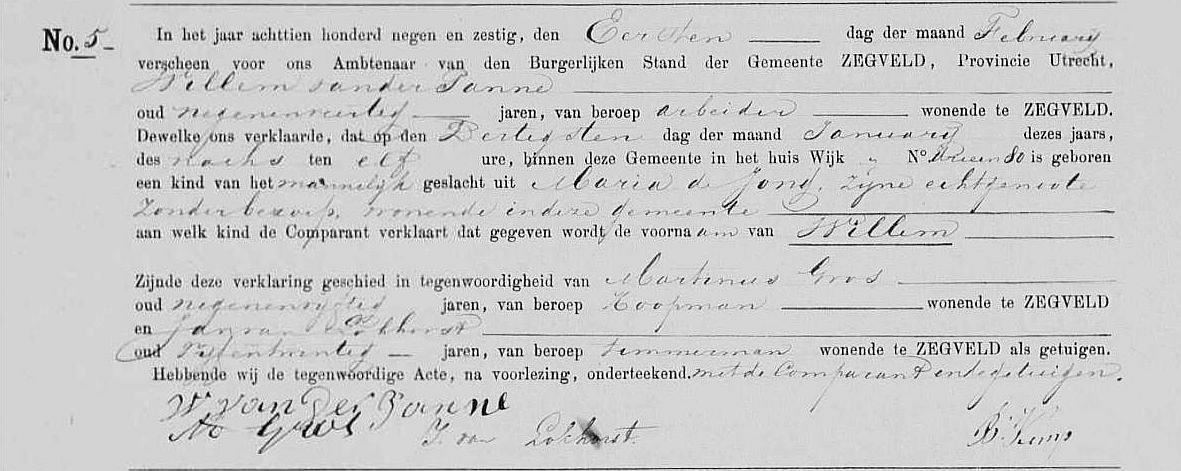 No. 5
In het jaar achttien honderd negen en zestig, den Eersten dag der maand February
verscheen voor ons Ambtenaar van den Burgerlijken Stand der Gemeente ZEGVELD, Provincie Utrecht,
Willem van der Panne
oud jaren, van beroep arbeider wonende te ZEGVELD.
Dewelke ons verklaarde, dat op den Dertigsten dag der maand January dezes jaars,
des nachts ten elf ure, binnen deze Gemeente in het huis Wijk „ No. 80 is geboren
een kind van het mannelijk geslacht uit Maria de Jong, zijne echtgenoote
Zonder beroep, wonende in deze gemeente
aan welk kind de Comparant verklaart dat gegeven wordt de voornaam van Willem
Zijnde deze verklaring geschied in tegenwoordigheid van Martinus Gros
oud jaren, van beroep Koopman wonende te ZEGVELD
en Jan van Lokhorst
oud jaren, van beroep timmerman wonende te ZEGVELD als getuigen.
Hebbende wij de tegenwoordige Acte, na voorlezing, onderteekend. met de Comparant en de getuigen.
W van der Panne
Gros J. van Lokhorst. Kemp